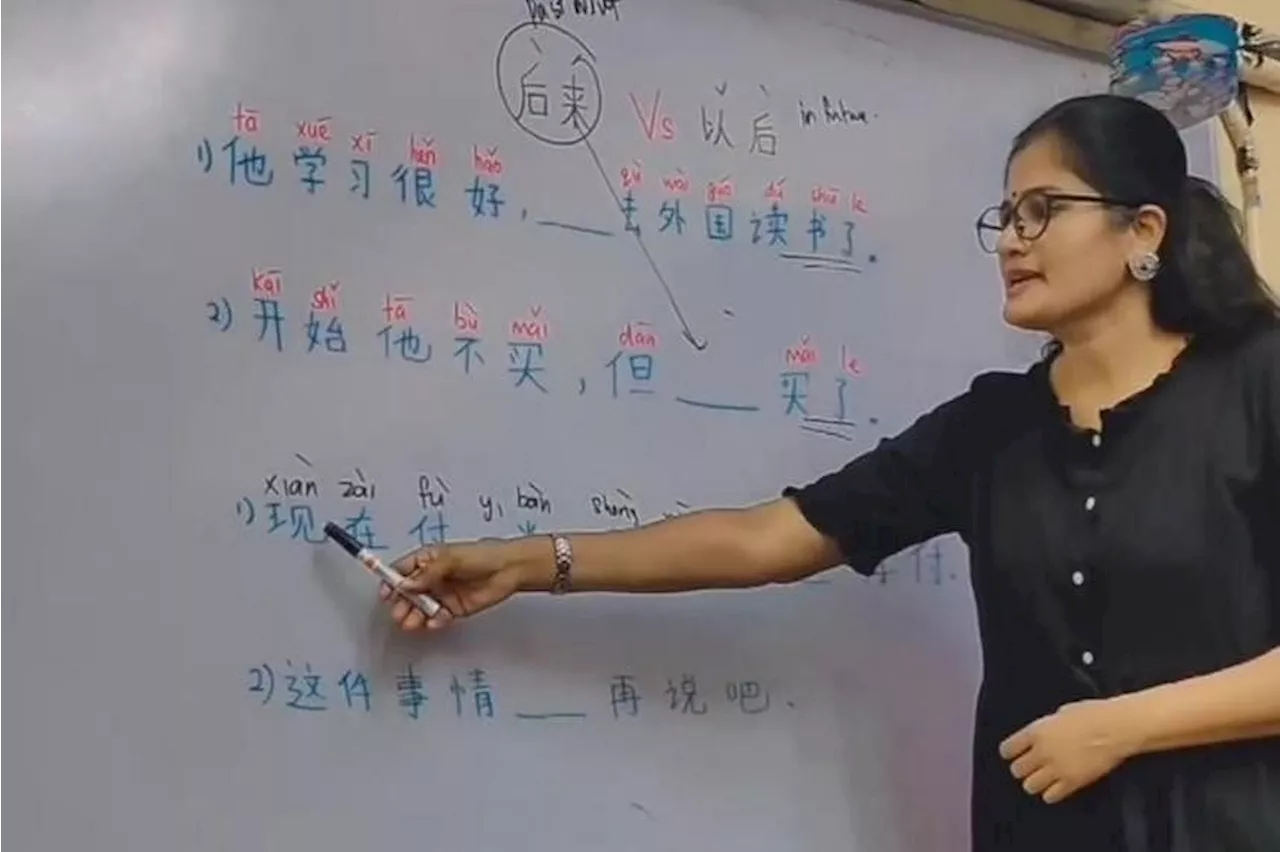 后来 Vs 以后 in future.
tā xuē xī hěn hǎo qù wài guó dú shū le
1) 他学习很好, ___ 去外国读书了.
kāi shǐ tā bù mǎi dàn mǎi le
2) 开始他不买, 但 ___ 买了.
xiàn zài fù yí bàn shèng
1) 现在付 付.
2) 这件事情 ___ 再说吧.